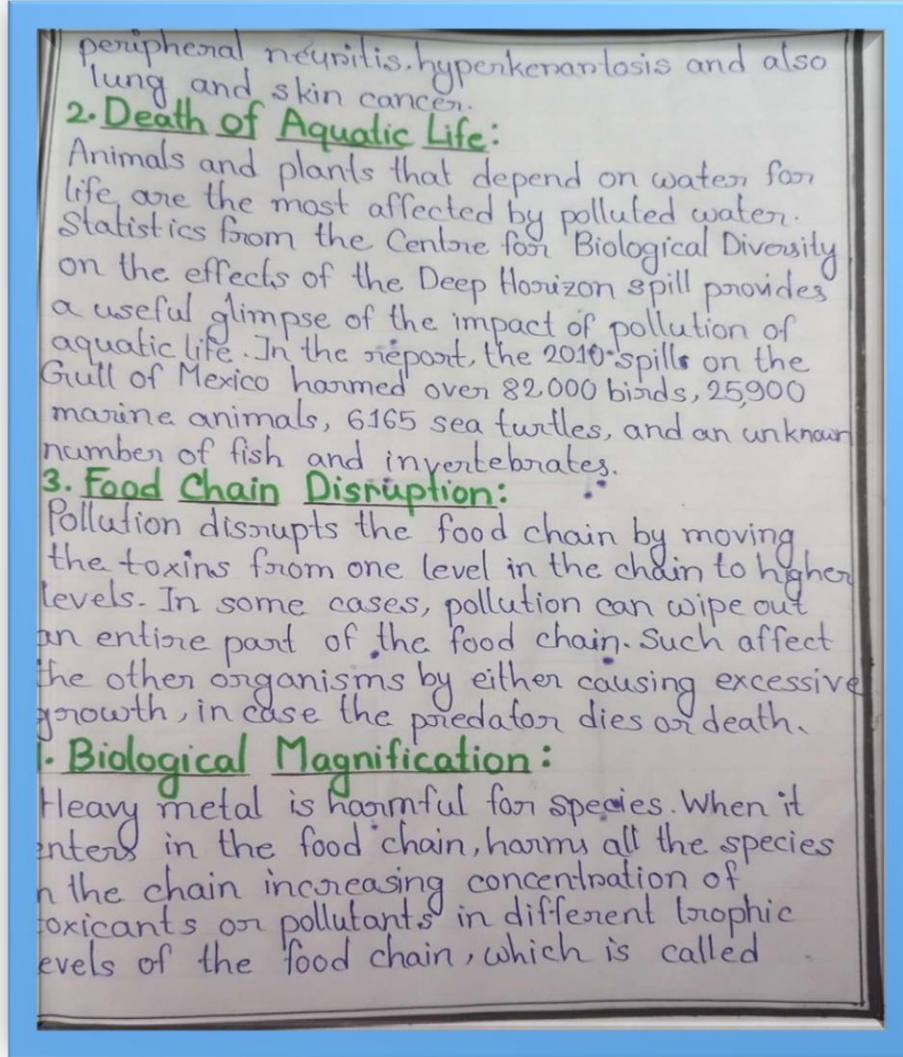 peripheral neuritis, hyperkerantosis and also
lung and skin cancer.
2. Death of Aquatic Life:
Animals and plants that depend on water for
life, are the most affected by polluted water.
Statistics from the Centre for Biological Diversity
on the effects of the Deep Horizon spill provides
a useful glimpse of the impact of pollution of
aquatic life. In the report, the 2010 spills on the
Gull of Mexico harmed over 82,000 birds, 25,900
marine animals, 6165 sea turtles, and an unknown
number of fish and invertebrates.
3. Food Chain Disruption:
Pollution disrupts the food chain by moving
the toxins from one level in the chain to higher
levels. In some cases, pollution can wipe out
an entire part of the food chain. Such affect
the other organisms by either causing excessive
growth, in case the predator dies or death.
. Biological Magnification:
Heavy metal is harmful for species. When it
enters in the food chain, harms all the species
n the chain increasing concentration of
toxicants or pollutants in different trophic
evels of the food chain, which is called